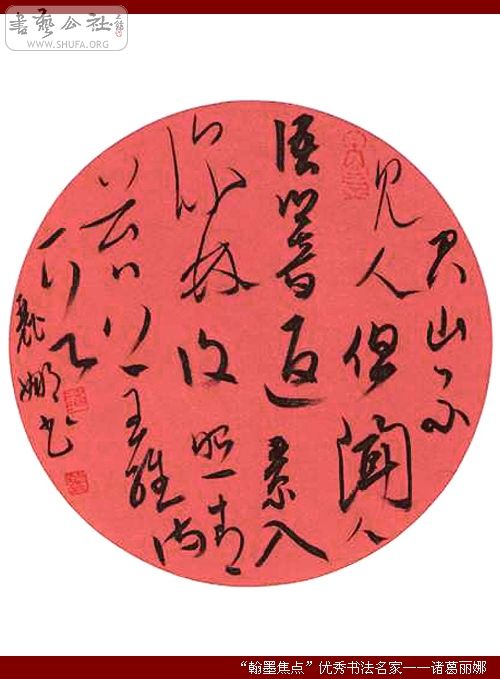 書藝公社
WWW.SHUFA.ORG
空山不
見人但聞人
語響返景入
深林復照青
苔上王維詩
麗娜書
“翰墨焦点”优秀书法名家——诸葛丽娜